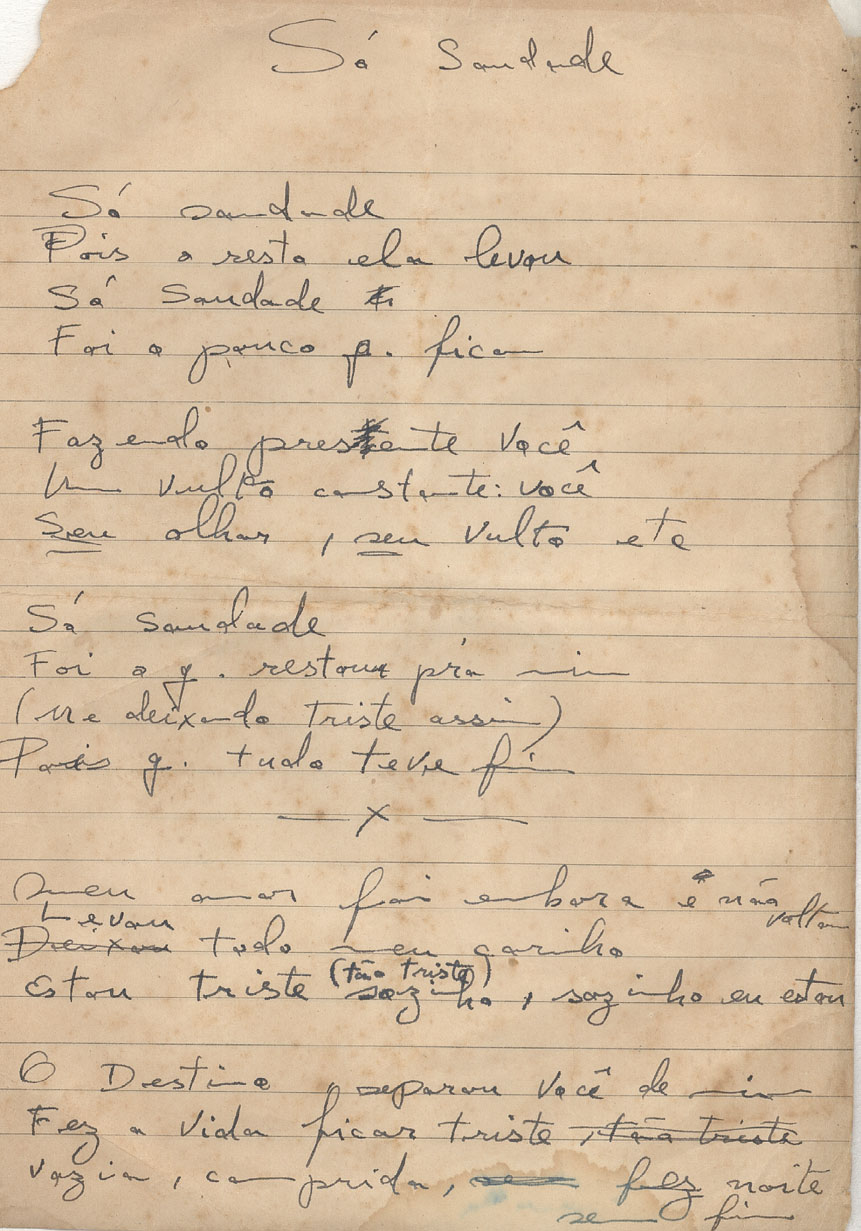 Só saudade
Só saudade
Pois o resto ela levou
Só saudade
Foi o pouco q. ficou
Fazendo presente você
Um vulto constante: você
Seu olhar, seu vulto etc
Só saudade
Foi o q. restou prá mim
(Me deixando triste assim)
Pois q. tudo teve fim
— x —
Meu amor foi embora e não
voltou
Levou
Deixou todo meu carinho
(tão triste)
Estou triste sozinho, sozinho eu estou
O Destino separou você de mim
Fez a vida ficar triste, tão triste
vazia, comprida, fez noite
sem fim